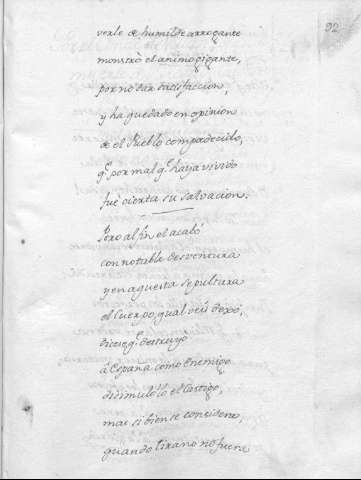 92
verle de humilde arrogante
monstrò el animo gigante,
por no dar satisfaccion,
y ha quedado en opinion
de el Pueblo compadecido,
q.e por mal q.e haya vivido
fue cierta su salvacion.
Pero al fin el acabó
con notable desventura
y en aquesta sepultura
el Cuerpo, qual veis dexó,
dicese q.e destruyo
à España como Enemigo
disimuló el Castigo,
mas si bien se considera,
quando tirano no fuera